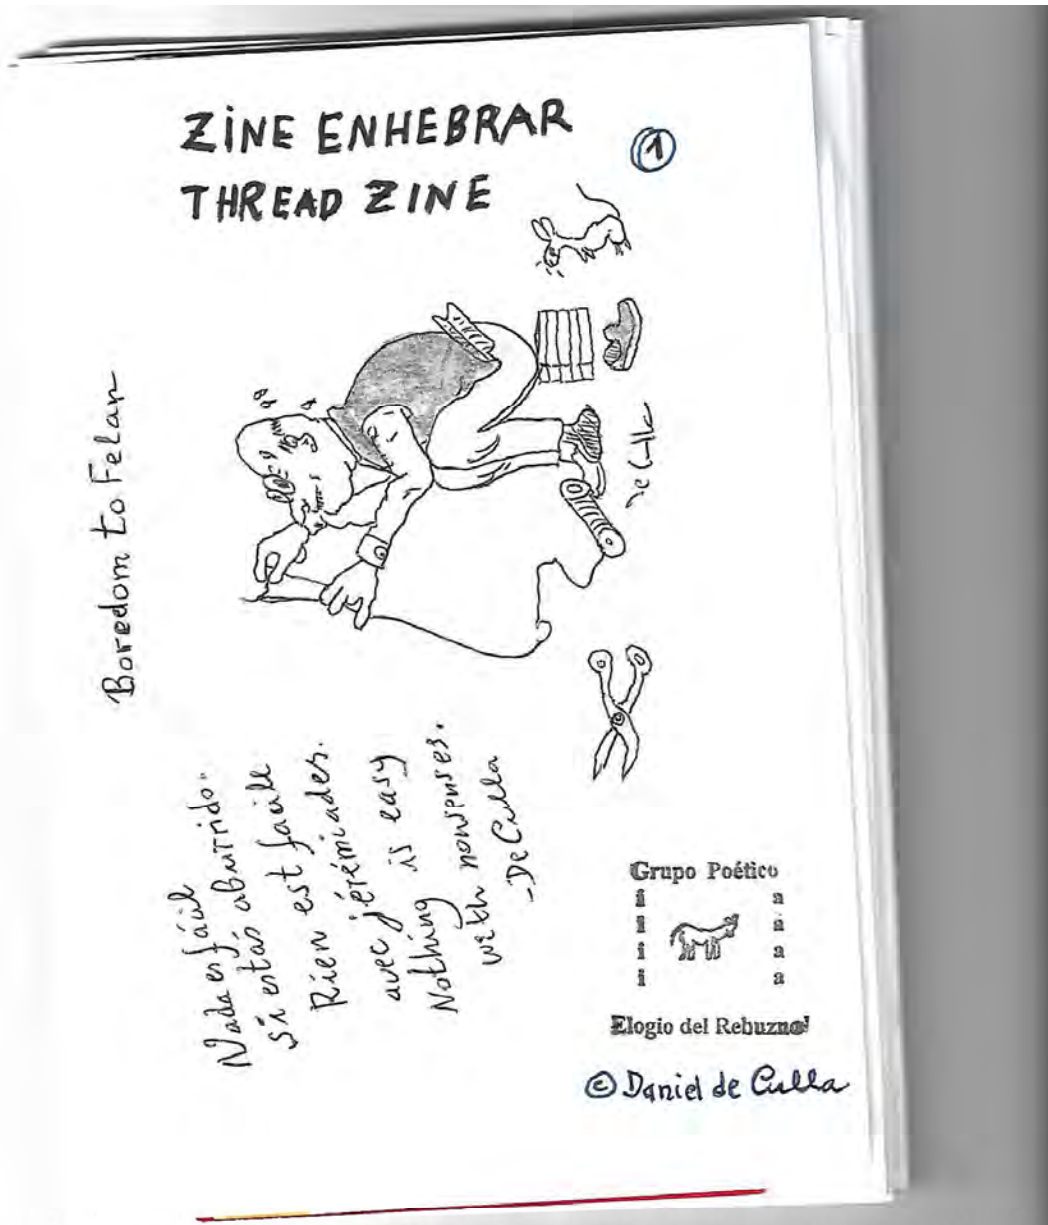 ZINE ENHEBRAR
THREAD ZINE
1
Boredom to Felan
De Culla
Nada es fácil
si estás aburrido.
Rien est facile
avec jérémiades.
Nothing is easy
with nonsenses.
-De Culla
Grupo Poético
i a
i a
i a
i a
Elogio del Rebuzno!
© Daniel de Culla